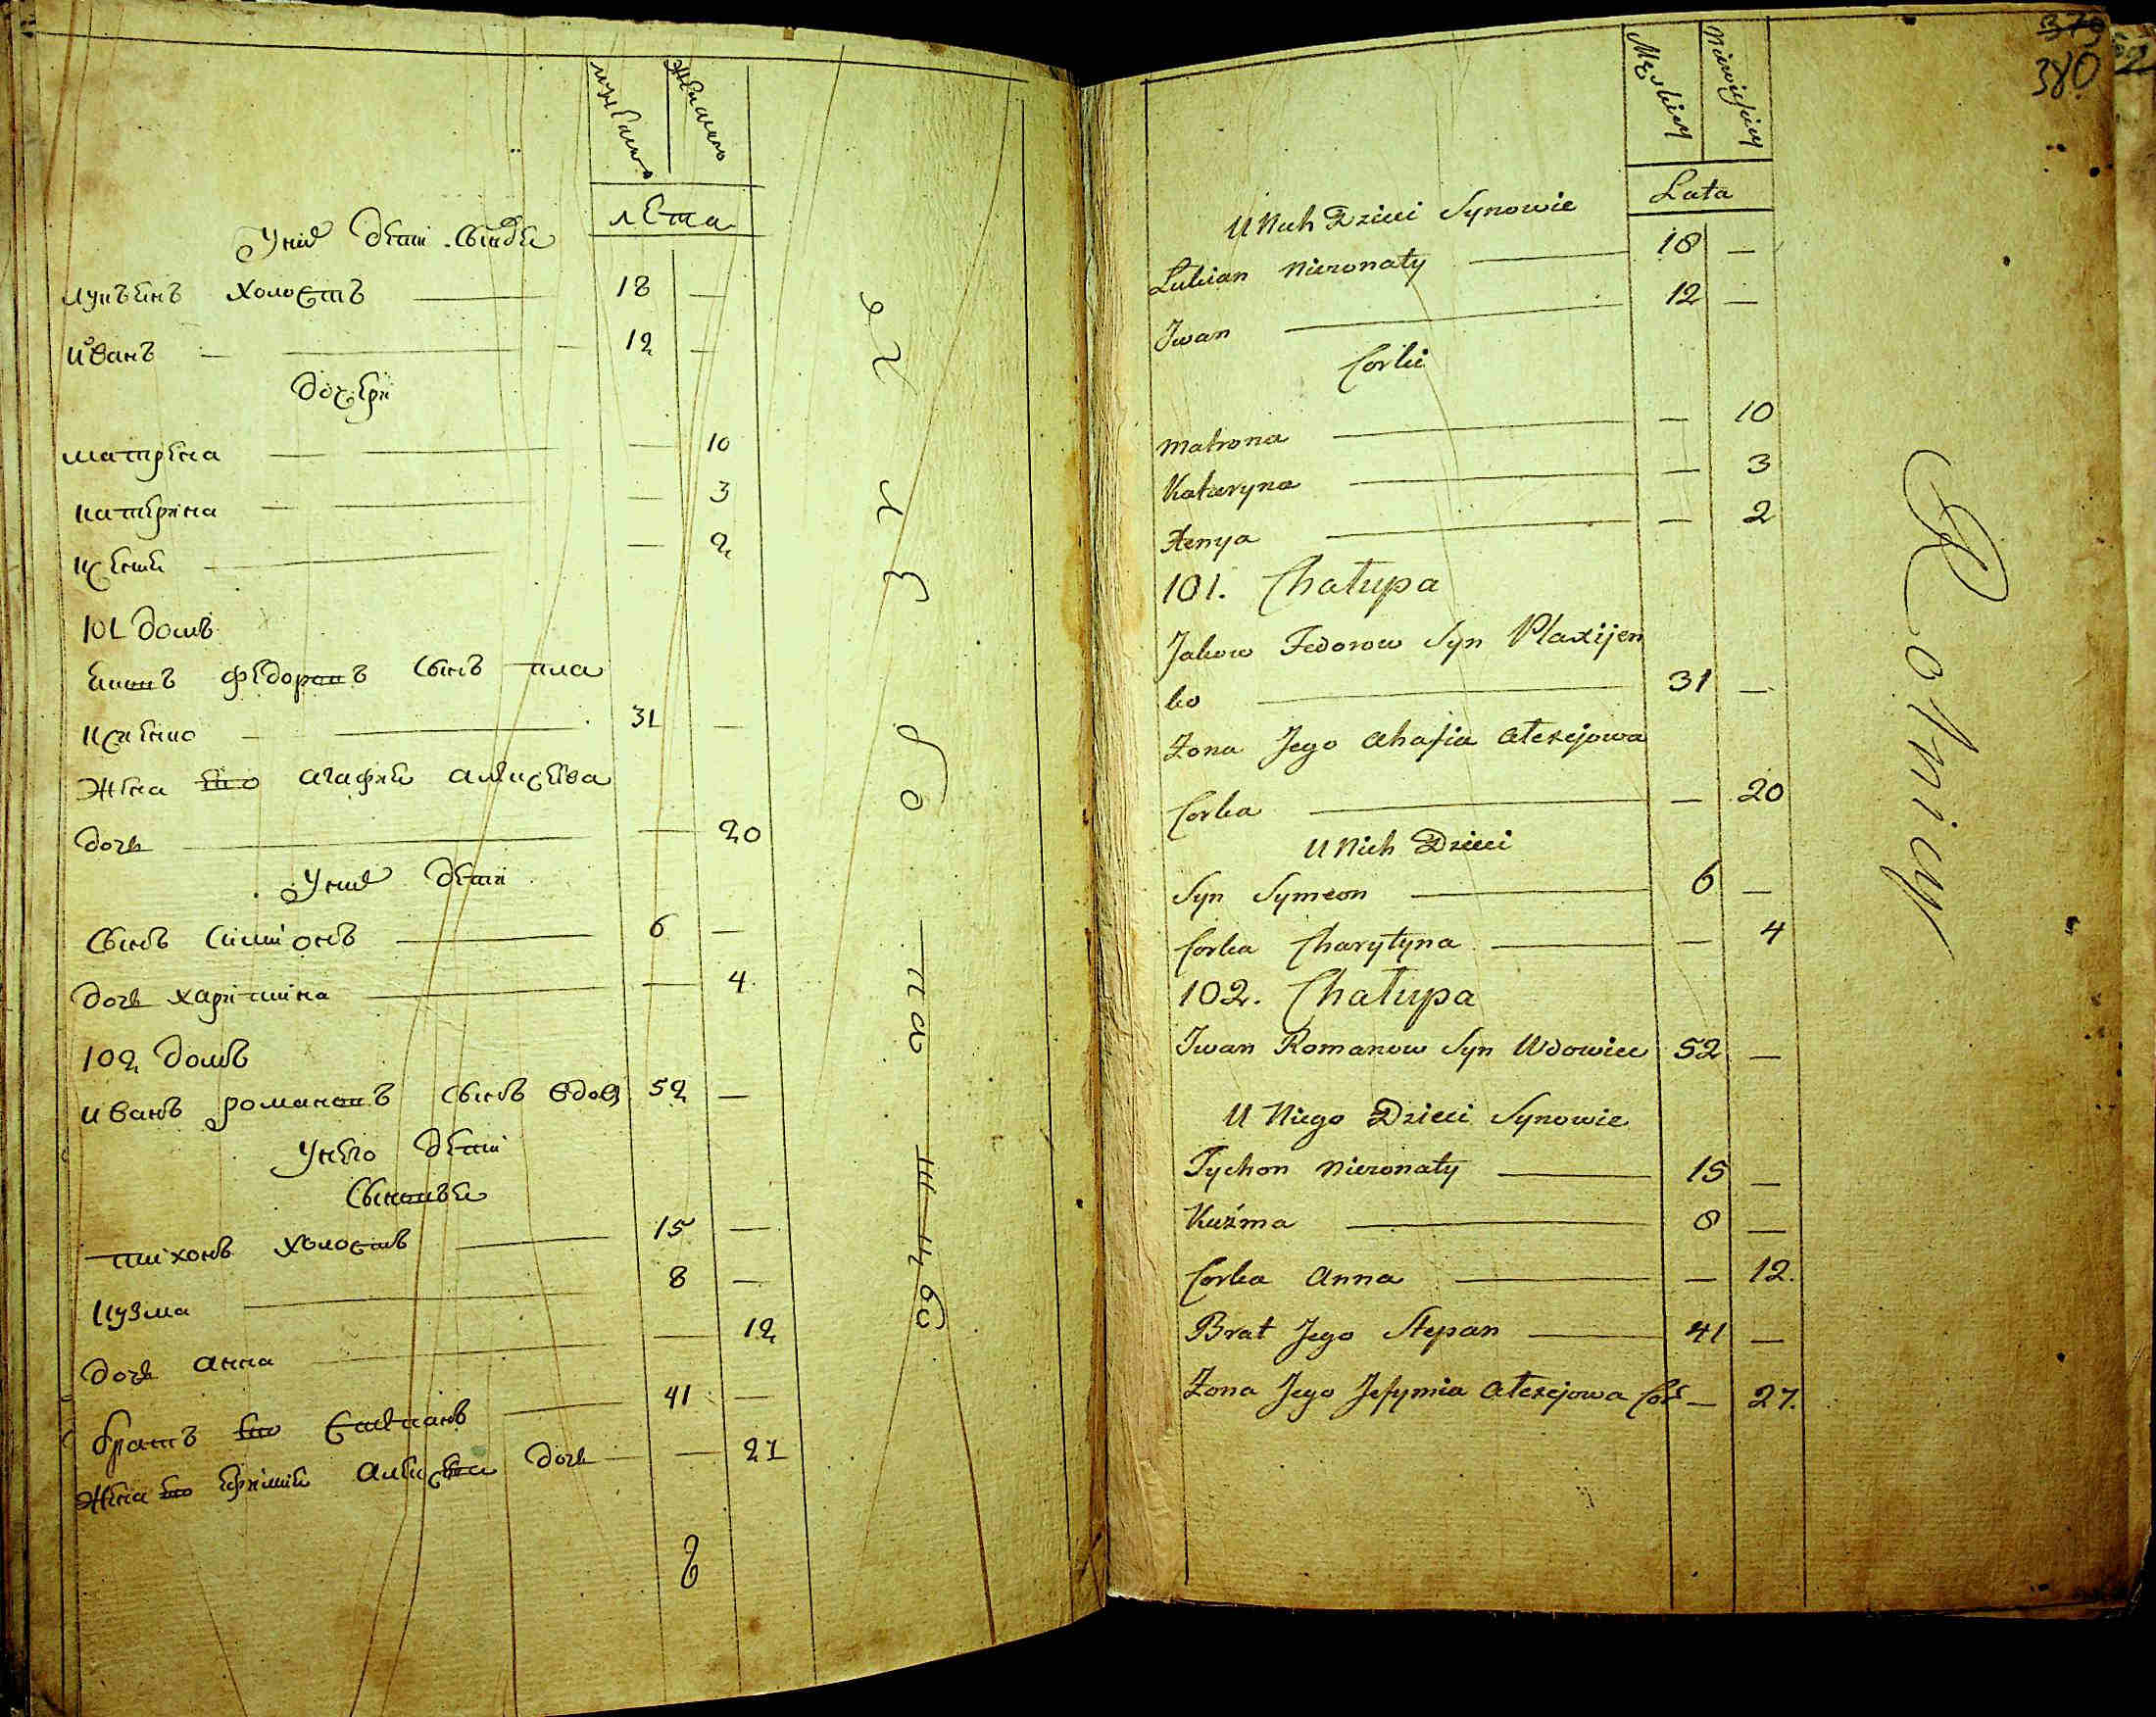 мужеска
женска
лета
У них дети сынове
лукъянъ холостъ — 18 —
иванъ — 12 —
дочери
матрена — — 10
катерина — — 3
ксеня — — 2
101 домъ
яковъ федоровъ сынъ пла
ксиенко — 31 —
жена его агафия алексеева
дочь — — 20
У них дети
сынъ симионъ — 6 —
дочь харитина — — 4
102 домъ
иванъ романовъ сынъ вдов 52 —
У него дети
сынове
тихонъ холостъ — 15 —
кузма — 8 —
дочь анна — — 12
братъ его степанъ — 41 —
жена его ефимия алексеева дочь — — 27
379
380
Męskiey
Niewieściey
Lata
U Nich Dzieci Synowie
Lukian Nieżonaty — 18 —
Jwan — 12 —
Corki
Matrona — — 10
Kataryna — — 3
Xenya — — 2
101. Chałupa
Jakow Fedorow Syn Plaxijen
ko — 31 —
Żona Jego Ahafia Alexejowa
Corka — — 20
U Nich Dzieci
Syn Symeon — 6 —
Corka Charytyna — — 4
102. Chałupa
Jwan Romanow Syn Wdowiec 52 —
U Niego Dzieci Synowie
Tychon Nieżonaty — 15 —
Kuźma — 8 —
Corka Anna — — 12.
Brat Jego Stepan — 41 —
Żona Jego Jefymia Alexejowa Cor — 27.
Rolnicy